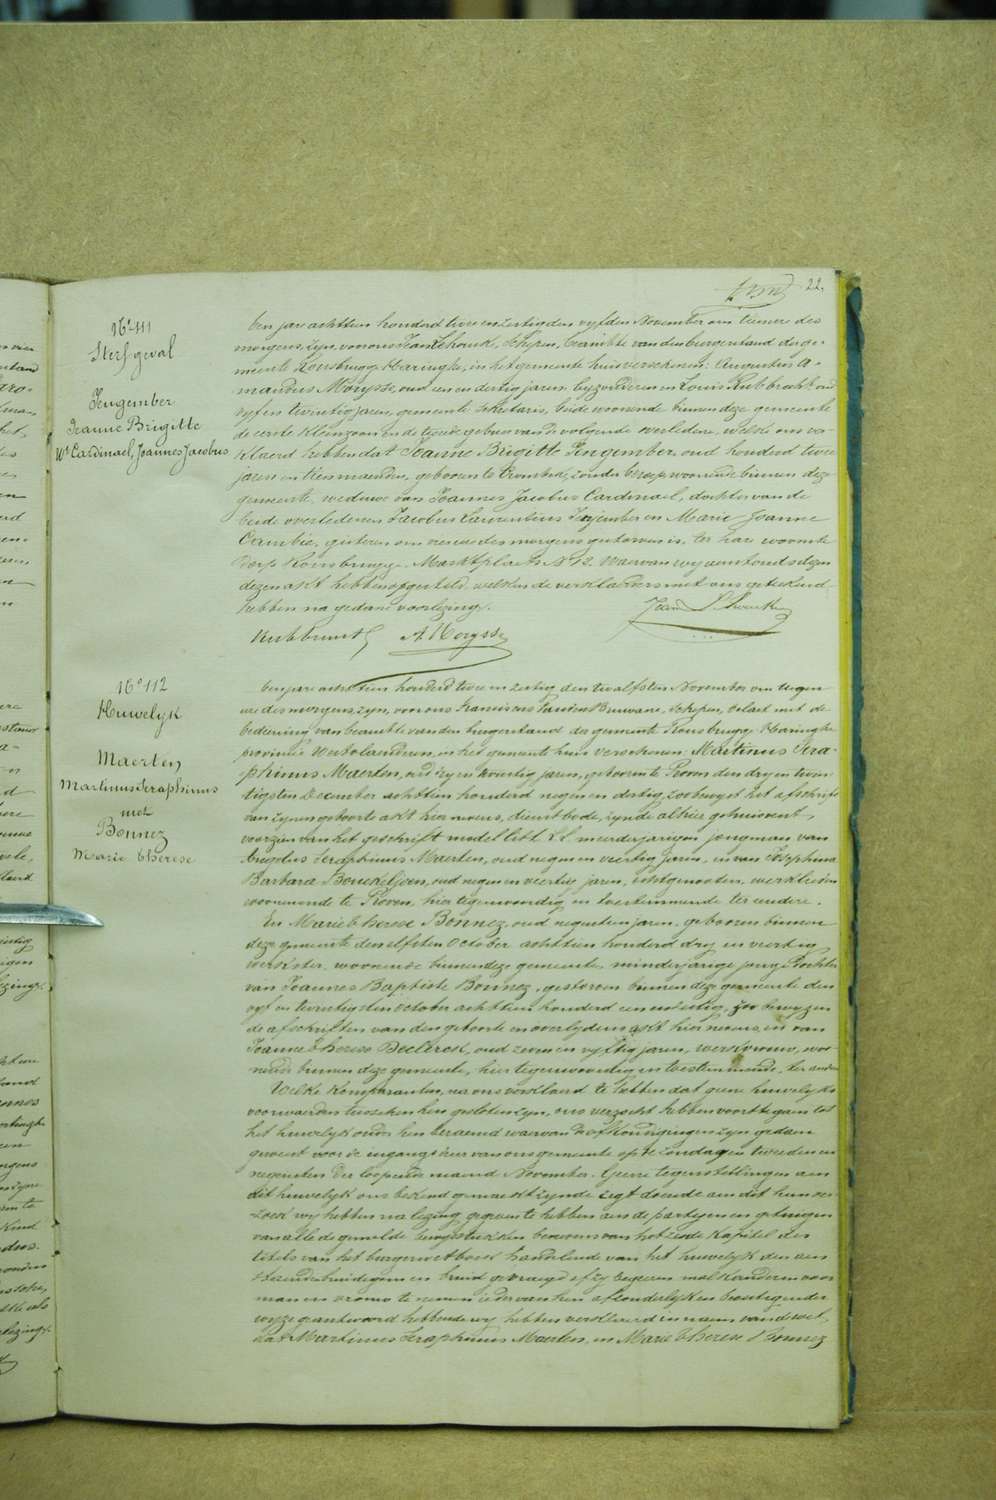 22.
No 111
Sterfgeval
Fengember
Jeanne Brigitte
We Cardinael, Joannes Jacobus
ten jare achttien honderd twee en zestig den vyfden November om tien ure des
morgens, zyn voor ons Jean Lehouck, Schepen, beambte van den burgerstand der ge-
meente Rousbrugge Haringhe, in het gemeente huis verschenen: Augustin A-
mandus Moryssе, oud een en dertig jaren, byzonderen en Louis Rubbrecht oud
vyf en twintig jaren, gemeente sekretaris, beide woonende binnen deze gemeente
de eerste kleinzoon en de tweede gebuer van de volgende overledene, welke ons ver-
klaerd hebben dat Joanne Brigitte Fengember, oud honderd twee
jaren en tien maenden, geboren te Crombeke, zonder beroep woonende binnen deze
gemeente, weduwe van Joannes Jacobus Cardinael, dochter van de
beide overledenen Jacobus Laurentius Fengember en Marie Joanne
Cambie, gisteren om ure des morgens gestorven is, ter hare woonste
dorp Rousbrugge, Marktplaets No 12. Waervan wy aenstonds dezen
dezen akt hebben opgesteld, welken de verklaerders met ons geteekend
hebben na gedane voorlezing.
Jean Lehouck
Rubbrecht A. Morysse
No 112
Huwelyk
Maerten
Martinus Seraphinus
met
Bonnez
Marie Therese
ten jare achttien honderd twee en zestig den twalfsten November om negen
ure des morgens, zyn, voor ons Franciscus Vanden Bruwane, Schepen, belast met de
bediening van beambte van den burgerstand der gemeente Rousbrugge Haringhe
provincie Westvlaenderen, in het gemeente huis verschenen Martinus Sera-
phinus Maerten, oud twintig jaren, geboren te Proven den dry en twin-
tigsten December achttien honderd negen en dertig, zoo bewyst het afschrift
van zynen geboorte akt hier nevens, dienstbode, zynde alhier gehuisvest,
voorzien van het geschrift model litt. L.L. meerderjarigen jongman van
Angelus Seraphinus Maerten, oud negen en veertig jaren, en van Josephina
Barbara Bouckeljoen, oud negen en veertig jaren, echtgenooten, werklieden
woonende te Proven, hier tegenwoordig en toestemmende ter eendre.
En Marie Therese Bonnez, oud negentien jaren, geboren binnen
deze gemeente den elfsten October achttien honderd dry en veertig
werkster, woonende binnen deze gemeente, minderjarige jonge Dochter
van Joannes Baptiste Bonnez, gestorven binnen deze gemeente den
vyf en twintigsten October achttien honderd een en zestig, zoo bewyzen
de afschriften van den geboorte en overlydens akt hier nevens, en van
Joanne Therese Declerck, oud zeven en vyftig jaren, werkvrouw, woo-
nende binnen deze gemeente, hier tegenwoordig en toestemmende, ter andre
Welke komparanten, na ons verklaerd te hebben dat geene huwelyks
voorwaerden tusschen hen gesloten zyn, ons verzocht hebben voort te gaen tot
het huwelyk onder hen beraemd waervan de afkondigingen zyn gedaen
geweest voor de ingangdeur van ons gemeente op de zondagen tweeden en
negensten der loopende maend November. Geene tegenstellingen aen
dit huwelyk ons bekend gemaekt zynde, regt doende aen dit hun ver-
zoek wy hebben na lezing gegeven te hebben aen de partyen en getuigen
van alle de gemelde bewysstukken benevens van het zesde kapittel des
titels van het burger wetboek handelende van het huwelyk den aen-
staende bruidegom en bruid gevraegd of zy begeeren malkanderen voor
man en vrouw te nemen ieder van hen afzonderlyk en bevestigender
wyze geantwoord hebbende wy hebben verklaerd in naem van de wet,
dat Martinus Seraphinus Maerten, en Marie Therese Bonnez